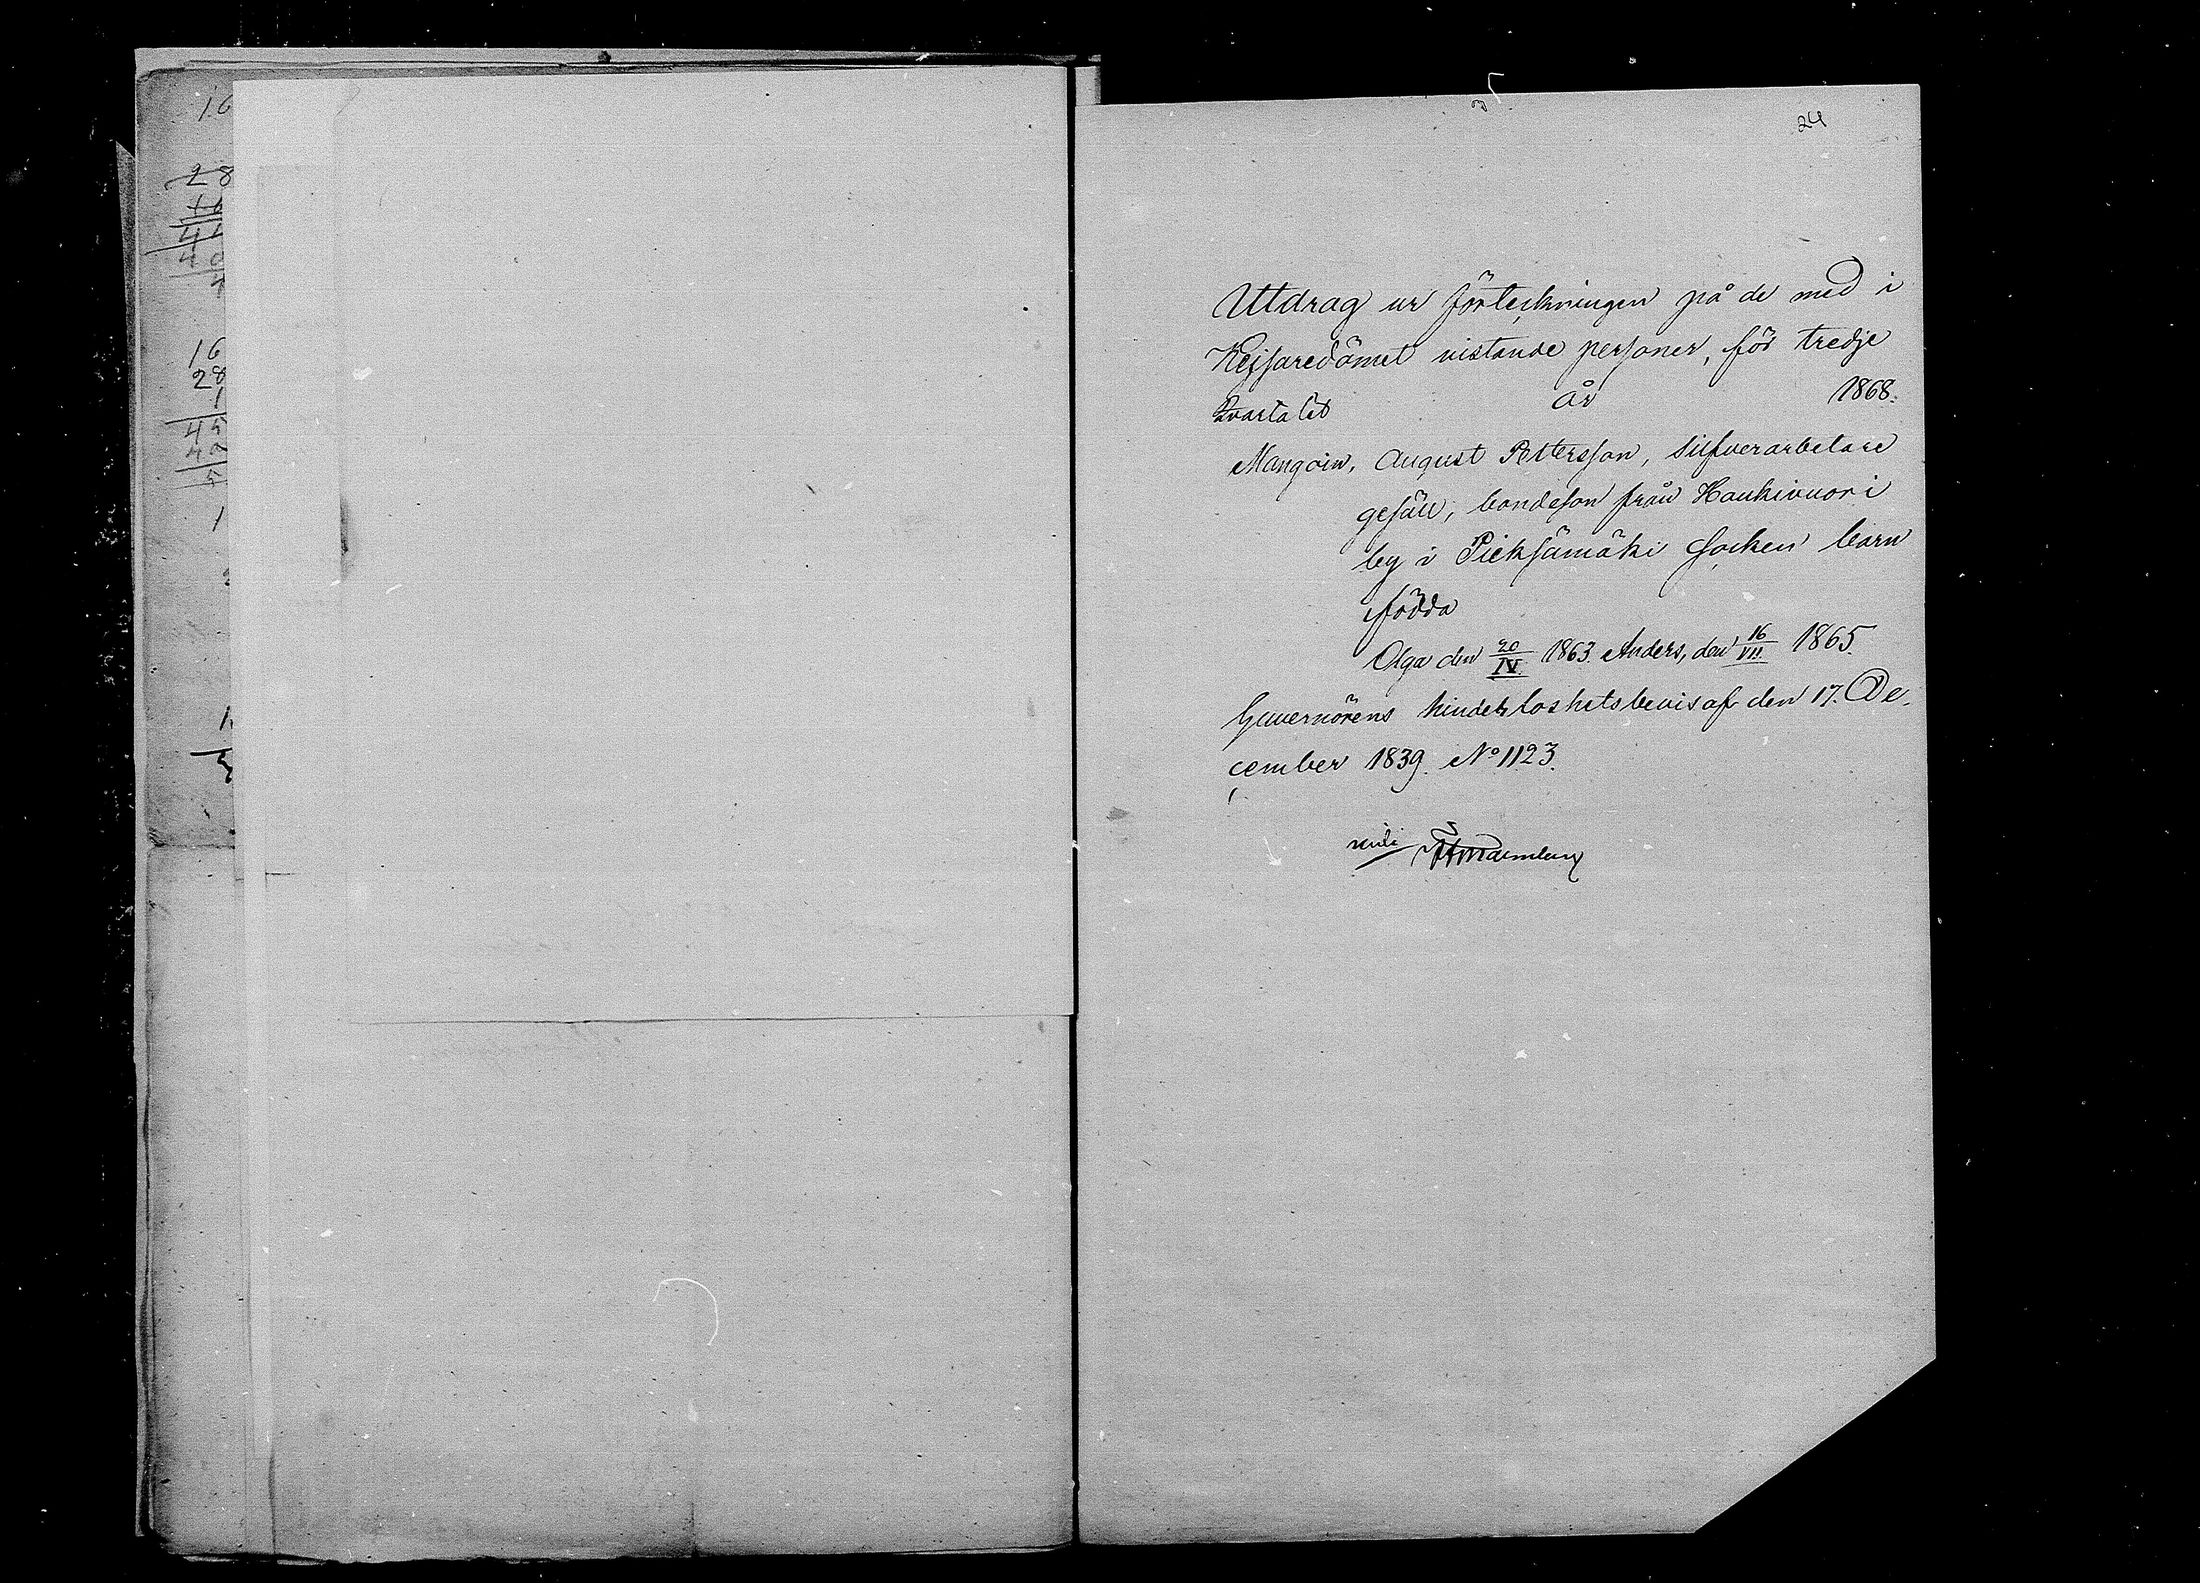 16
28
16
28
1
45
40
5
1
24
Utdrag ur förteckningen på de med i
Kejsaredömet vistande personer, för tredje
kvartalet år 1868.
Mangoin, August Pettersson, silfverarbetare
gesäll, bondeson från Haukivuori
by i Pieksämäki socken barn
födda
Olga den 20/IV 1863. Anders, den 16/VII 1865.
Guvernörens hinderloshetsbevis af den 17. De-
cember 1839. No 1123.